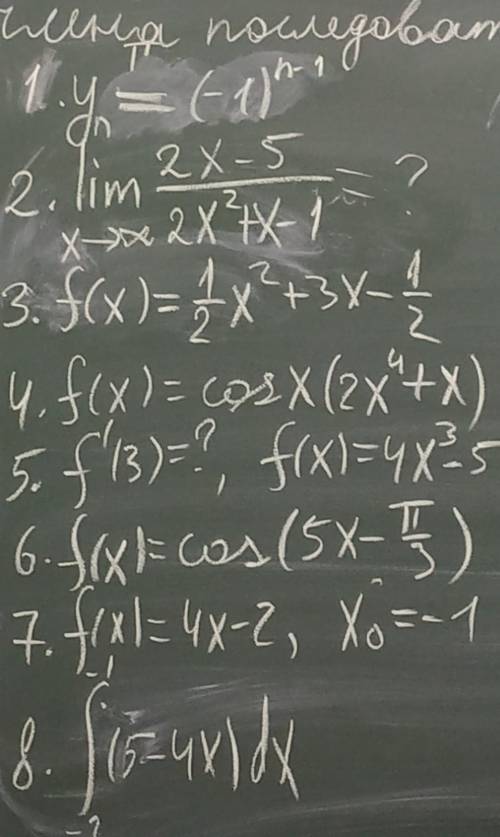 члена последоват
1. yn = (-1)^{n-1}
2. lim x→∞ (2x-5)/(2x²+x-1) = ?
3. f(x) = 1/2 x² + 3x - 1/2
4. f(x) = cosx(2x⁴+x)
5. f'(3) = ?, f(x) = 4x³-5
6. f(x) = cos(5x - π/3)
7. f(x) = 4x-2, x₀ = -1
8. ∫_{-2}^{-1} (5-4x)dx